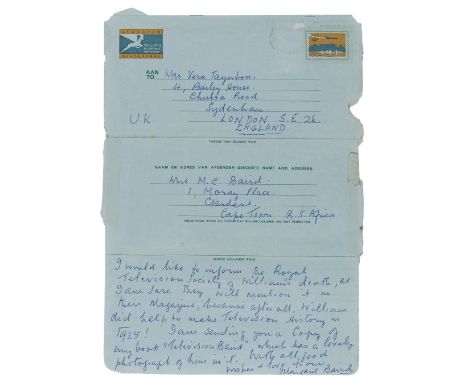 AEROGRAM
AAN
TO
Mrs Vera Taynton.
4, Bailey House
Chulsa Road
Sydenham.
U.K. LONDON S.E 26
ENGLAND
NAAM EN ADRES VAN AFSENDER-SENDER'S NAME AND ADDRESS
Mrs M.C. Baird.
1, Moray Place.
Gardens.
Cape Town R.S. Africa
I would like to inform the Royal
Television Society of William's death, as
I am sure they will mention it in
their Magazine, because after all, William
did help to make Television History in
1925! I am sending you a Copy of
my book "Television Baird", which has a lovely
photograph of him in it. With all good
wishes & love from
Margaret Baird